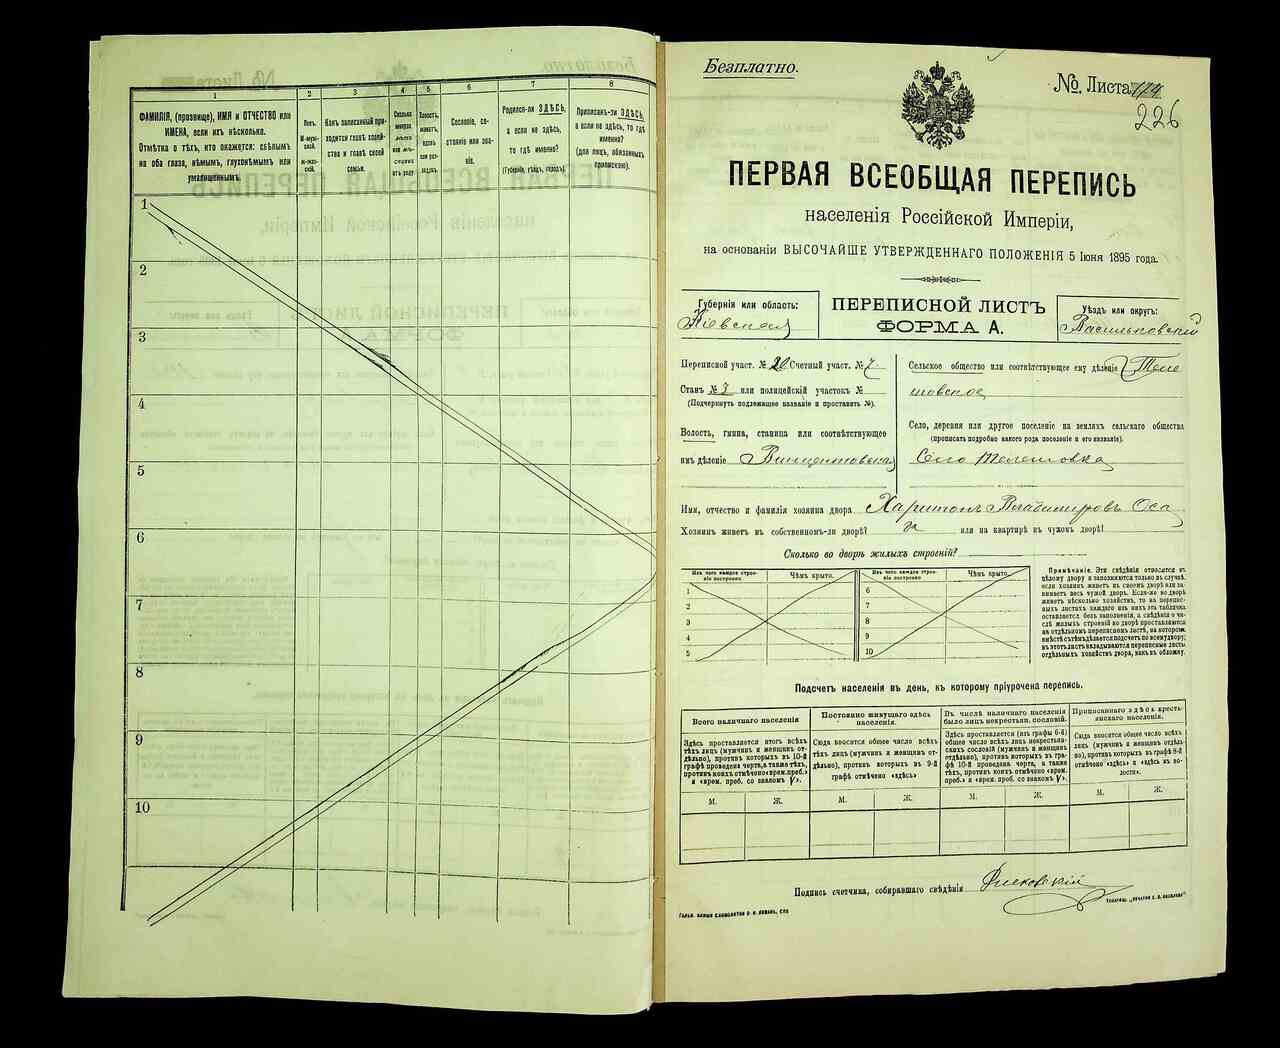 1
2
3
4
5
6
7
8
ФАМИЛІЯ, (прозвище), ИМЯ и ОТЧЕСТВО или
ИМЕНА, если ихъ нѣсколько.
Отмѣтка о тѣхъ, кто окажется: слѣпымъ
на оба глаза, нѣмымъ, глухонѣмымъ или
умалишеннымъ.
Полъ.
М-муж-
ской.
Ж-жен-
скій.
Какъ записанный при-
ходится главѣ хозяй-
ства и главѣ своей
семьи.
Сколько
минуло
лѣтъ
или мѣ-
сяцевъ
отъ роду
Холостъ,
женатъ,
вдовъ
или раз-
веденъ.
Сословіе, со-
стояніе или зва-
ніе.
Родился-ли ЗДѢСЬ,
а если не здѣсь,
то гдѣ именно?
(Губернія, уѣздъ, городъ).
Приписанъ-ли ЗДѢСЬ,
а если не здѣсь, то гдѣ
именно?
(для лицъ, обязанныхъ
припискою).
1
2
3
4
5
6
7
8
9
10
Безплатно.
№ Листа 174
226
ПЕРВАЯ ВСЕОБЩАЯ ПЕРЕПИСЬ
населенія Россійской Имперіи,
на основаніи ВЫСОЧАЙШЕ УТВЕРЖДЕННАГО ПОЛОЖЕНІЯ 5 Іюня 1895 года.
Губернія или область:
Кіевская
ПЕРЕПИСНОЙ ЛИСТЪ
ФОРМА А.
Уѣздъ или округъ:
Васильковскій
Переписной участ. № 20 Счетный участ. № 7
Станъ № 3 или полицейскій участокъ №
(Подчеркнуть подлежащее названіе и проставить №).
Волость, гмина, станица или соотвѣтствующее
имъ дѣленіе Винцентовская
Сельское общество или соотвѣтствующее ему дѣленіе Теле
шовское
Село, деревня или другое поселеніе на земляхъ сельскаго общества
(прописать подробно какого рода поселеніе и его названіе).
Село Телешовка
Имя, отчество и фамилія хозяина двора Харитонъ Владимировъ Оса
Хозяинъ живетъ въ собственномъ-ли дворѣ? да или на квартирѣ въ чужомъ дворѣ?
Сколько во дворѣ жилыхъ строеній?
Изъ чего каждое строе-
ніе построено
Чѣмъ крыто.
1
2
3
4
5
Изъ чего каждое строе-
ніе построено
Чѣмъ крыто.
6
7
8
9
10
Примѣчаніе. Эти свѣдѣнія относятся къ
цѣлому двору и заполняются только въ случаѣ,
если хозяинъ живетъ въ своемъ дворѣ или за-
нимаетъ весь чужой дворъ. Если-же во дворѣ
живетъ нѣсколько хозяйствъ, то на перепис-
ныхъ листахъ каждаго изъ нихъ эта табличка
оставляется безъ заполненія, а свѣдѣнія о чи-
слѣ жилыхъ строеній во дворѣ проставляются
на отдѣльномъ переписномъ листѣ, на которомъ
вмѣстѣ съ тѣмъ дѣлается подсчетъ по всему двору;
въ этотъ листъ вкладываются переписные листы
отдѣльныхъ хозяйствъ двора, какъ въ обложку.
Подсчетъ населенія въ день, къ которому пріурочена перепись.
Всего наличнаго населенія
Здѣсь проставляется итогъ всѣхъ
тѣхъ лицъ (мужчинъ и женщинъ от-
дѣльно), противъ которыхъ въ 10-й
графѣ проведена черта, а также тѣхъ,
противъ коихъ отмѣчено «врем. преб.»
и «врем. преб. со знакомъ V».
М.
Ж.
Постоянно живущаго здѣсь
населенія.
Сюда вносится общее число всѣхъ
тѣхъ лицъ (мужчинъ и женщинъ от-
дѣльно), противъ которыхъ въ 9-й
графѣ отмѣчено «здѣсь»
М.
Ж.
Въ числѣ наличнаго населенія
было лицъ некрестьян. сословій.
Здѣсь проставляется (изъ графы 6-й)
общее число всѣхъ лицъ некрестьян-
скихъ сословій (мужчинъ и женщинъ
отдѣльно), противъ которыхъ въ графѣ
10-й проведена черта, а также
тѣхъ, противъ коихъ отмѣчено «врем.
преб.» и «врем. преб. со знакомъ V».
М.
Ж.
Приписаннаго здѣсь кресть-
янскаго населенія.
Сюда вносится общее число всѣхъ
лицъ (мужчинъ и женщинъ отдѣль-
но), противъ которыхъ въ графѣ 8-й
отмѣчено «здѣсь» и «здѣсь въ во-
лости».
М.
Ж.
Подпись счетчика, собиравшаго свѣдѣнія